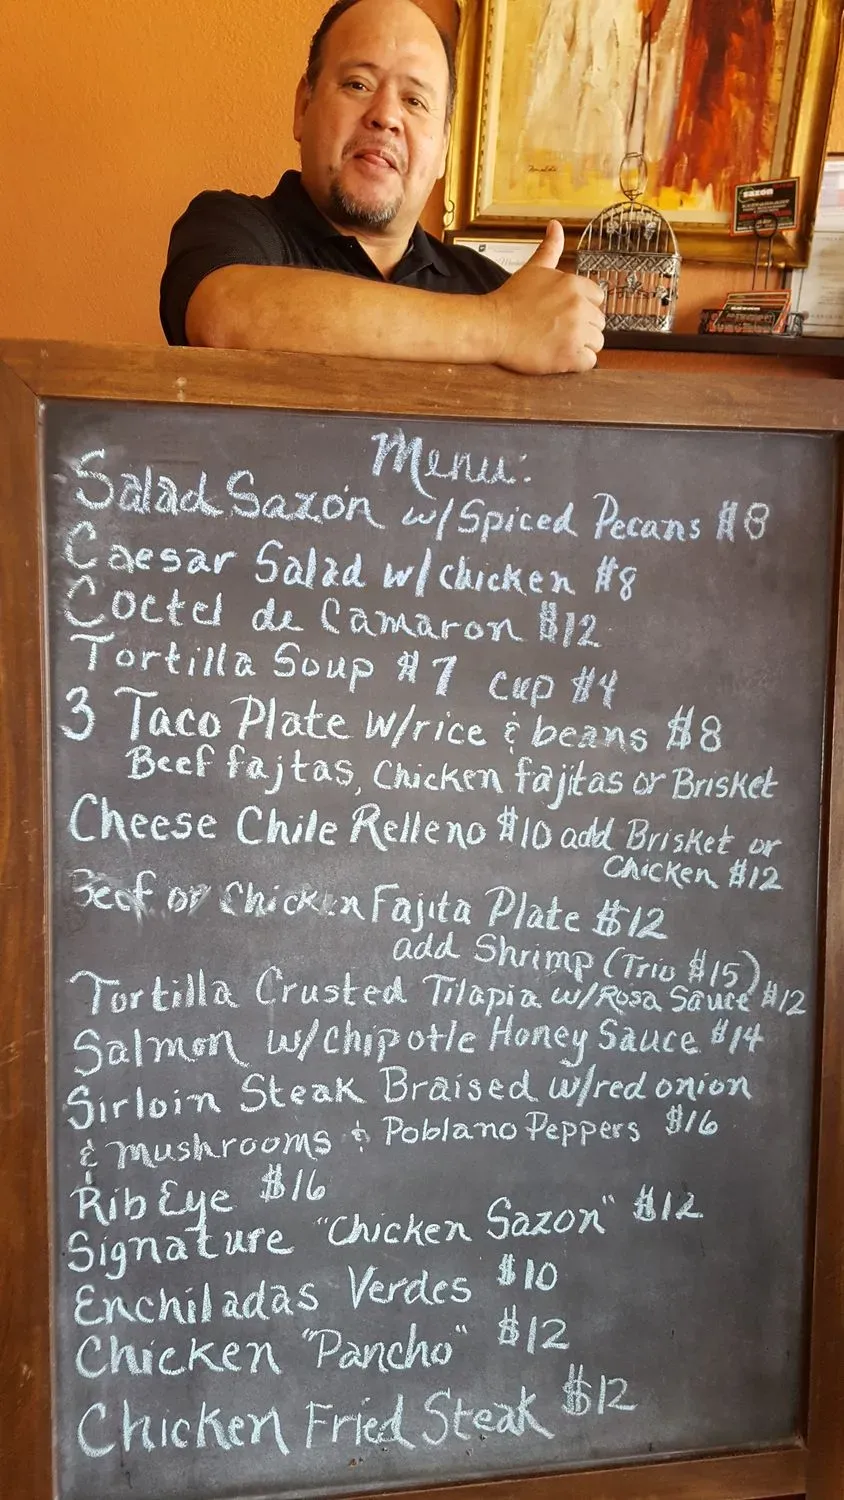 sazón
Menu:
Salad Sazón w/Spiced Pecans $8
Caesar Salad w/chicken $8
Coctel de Camaron $12
Tortilla Soup $7 cup $4
3 Taco Plate w/rice & beans $8
Beef fajtas, Chicken fajitas or Brisket
Cheese Chile Relleno $10 add Brisket or
Chicken $12
Beef or Chicken Fajita Plate $12
add Shrimp (Trio $15)
Tortilla Crusted Tilapia w/Rosa Sauce $12
Salmon w/Chipotle Honey Sauce $14
Sirloin Steak Braised w/red onion
& Mushrooms & Poblano Peppers $16
Rib Eye $16
Signature "Chicken Sazon" $12
Enchiladas Verdes $10
Chicken "Pancho" $12
Chicken Fried Steak $12